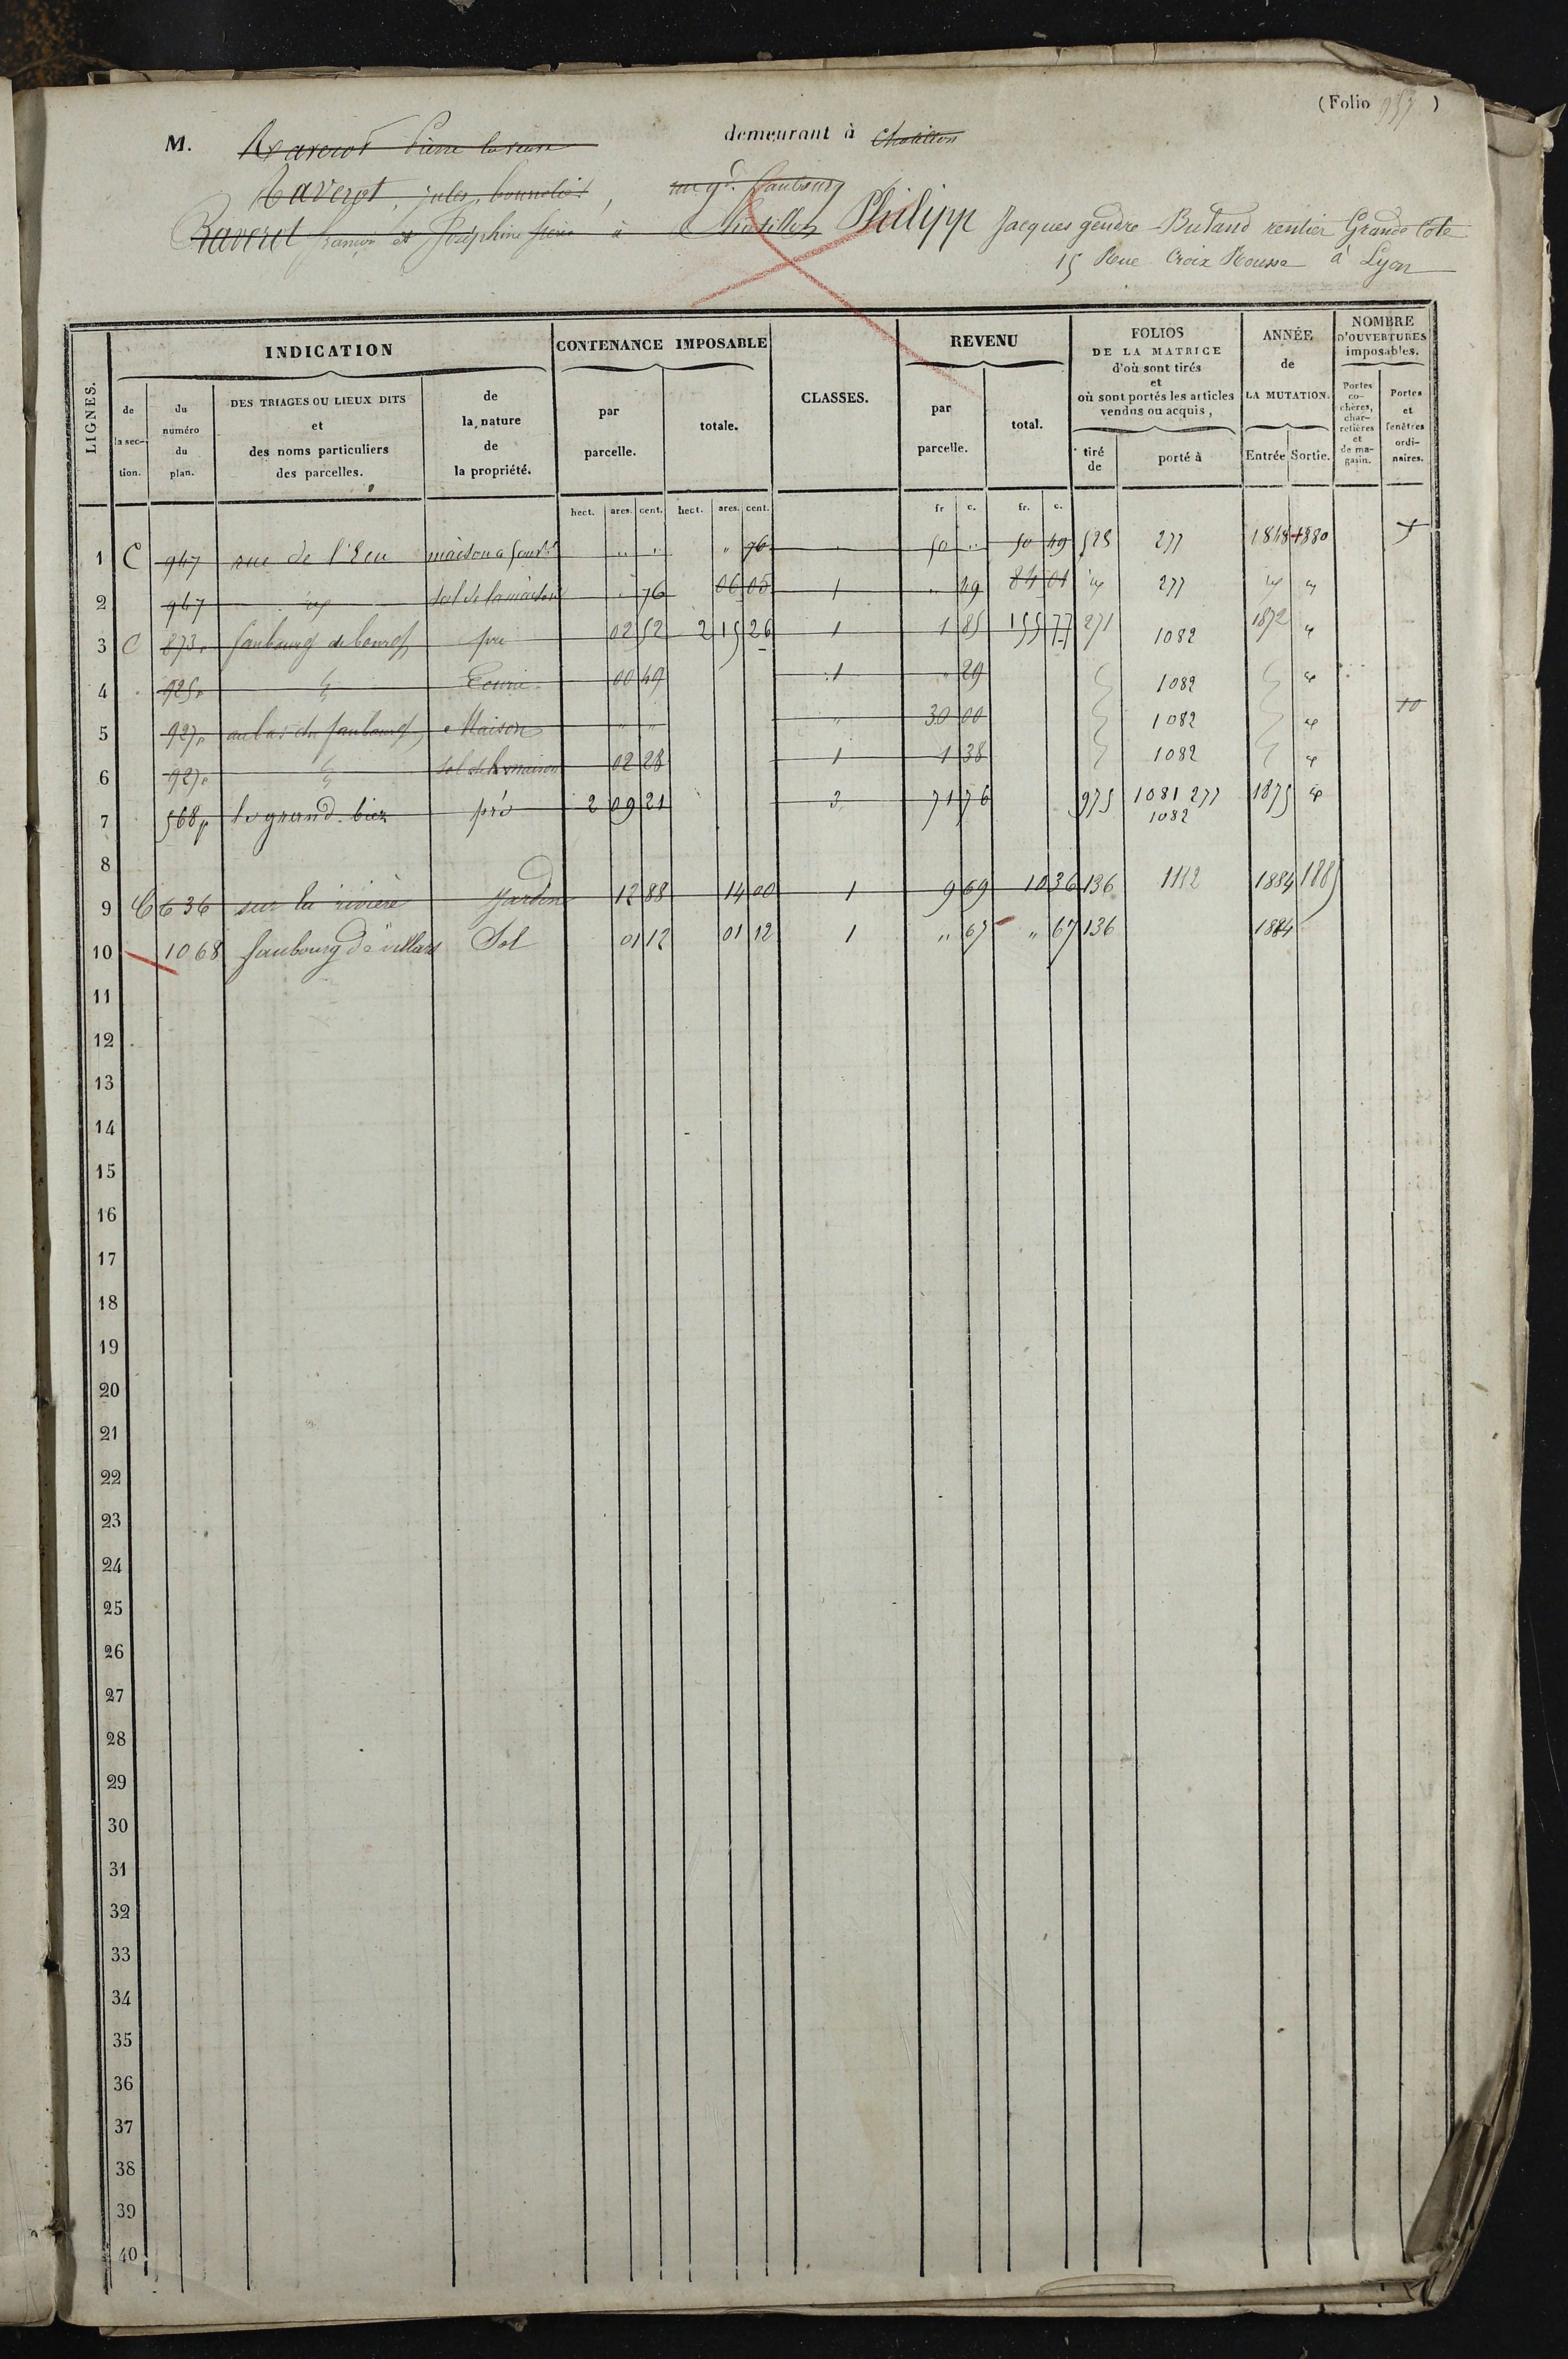 (Folio 957)
M. Raverot Pierre la veuve demeurant à Chatillon
Raverot, jules, bourrelier, rue gd. faubourg
Raverot françois et Joséphine frères à Chatillon Philipp Jacques gendre Buland rentier Grande Cote
15 Rue Croix Rousse à Lyon
LIGNES.
INDICATION
CONTENANCE IMPOSABLE
CLASSES.
REVENU
FOLIOS DE LA MATRICE d'où sont tirés et où sont portés les articles vendus ou acquis,
ANNÉE de LA MUTATION.
NOMBRE D'OUVERTURES imposables.
de la section.
du numéro du plan.
DES TRIAGES OU LIEUX DITS et des noms particuliers des parcelles.
de la nature de la propriété.
par parcelle.
totale.
par parcelle.
total.
tiré de
porté à
Entrée
Sortie.
Portes cochères, charretières et de magasin.
Portes et fenêtres ordinaires.
hect. ares. cent. hect. ares. cent. fr c. fr. c.
1 C 947 rue de l'Ecu maison a four " " " 76 " 50 " 50 49 528 277 1848 1880
2 947 id sol de la maison " 76 06 05 1 " 49 84 01 id 277 id id
3 C 873p faubourg de bourg pré 02 52 2 15 26 1 1 85 155 77 271 1082 1872 id
4 925p Ecurie 00 49 1 " 29 1082 id
5 927p au bas du faubourg Maison " " " 30 00 1082 id 10
6 927p sol de la maison 02 28 1 1 38 1082 id
7 568p le grand biez pré 2 09 21 3 71 76 975 1081 277 1875 id
1082
8
9 C 636 sur la rivière Jardin 12 88 14 00 1 9 69 10 36 136 1112 1884 1885
10 1068 faubourg de villars Sol 01 12 01 12 1 " 67 " 67 136 1884
11
12
13
14
15
16
17
18
19
20
21
22
23
24
25
26
27
28
29
30
31
32
33
34
35
36
37
38
39
40